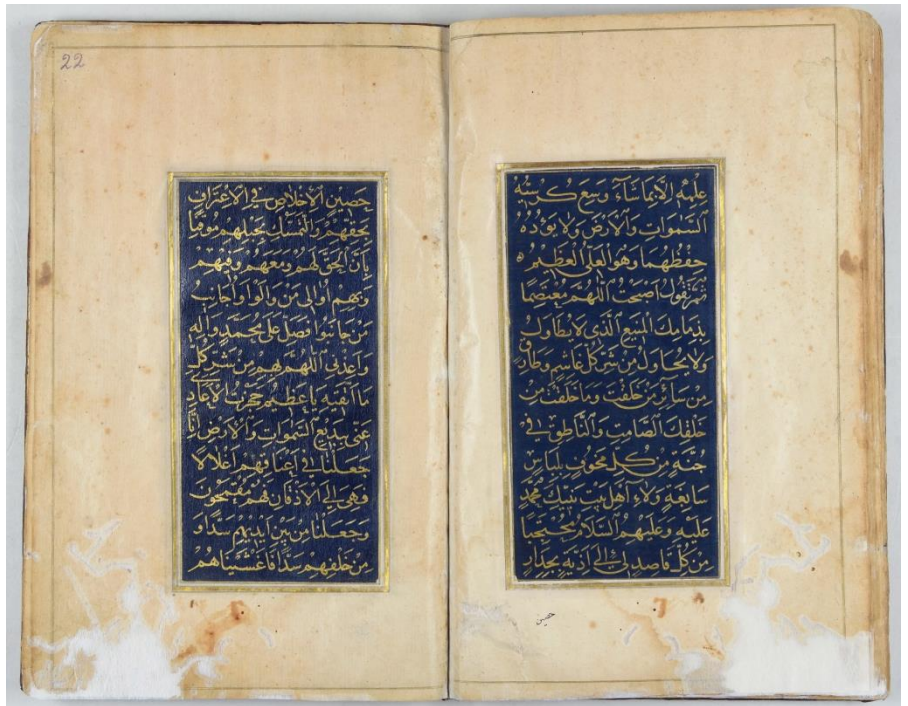 عِلْمِهِ إِلَّا بِمَا شَاءَ وَسِعَ كُرْسِيُّهُ
السَّمٰوَاتِ وَالْاَرْضَ وَلَا يَؤُدُهُ
حِفْظُهُمَا وَهُوَ الْعَلِيُّ الْعَظِيمُ
ثُمَّ تَقُولُ اَصْبَحْتُ اللّٰهُمَّ مُعْتَصِمًا
بِذِمَامِكَ الْمَنِيعِ الَّذِي لَا يُطَاوَلُ
وَلَا يُحَاوَلُ مِنْ شَرِّ كُلِّ غَاشِمٍ وَطَارِقٍ
مِنْ سَائِرِ مَنْ خَلَقْتَ وَمَا خَلَقْتَ مِنْ
خَلْقِكَ الصَّامِتِ وَالنَّاطِقِ فِي
جُنَّةٍ مِنْ كُلِّ مَخُوفٍ بِلِبَاسٍ
سَابِغَةٍ وَلَاءِ اَهْلِ بَيْتِ نَبِيِّكَ مُحَمَّدٍ
عَلَيْهِ وَعَلَيْهِمُ السَّلَامُ مُحْتَجِبًا
مِنْ كُلِّ قَاصِدٍ لِي اِلٰى اَذِيَّةٍ بِجِدَارٍ
حصين
22
حَصِينِ الْاِخْلَاصِ فِي الْاِعْتِرَافِ
بِحَقِّهِمْ وَالتَّمَسُّكِ بِحَبْلِهِمْ مُوقِنًا
بِاَنَّ الْحَقَّ لَهُمْ وَمَعَهُمْ وَفِيهِمْ
وَبِهِمْ اُوَالِي مَنْ وَالَوْا وَاُجَانِبُ
مَنْ جَانَبُوا فَصَلِّ عَلٰى مُحَمَّدٍ وَاٰلِهِ
وَاَعِذْنِي اللّٰهُمَّ بِهِمْ مِنْ شَرِّ كُلِّ
مَا اَتَّقِيهِ يَا عَظِيمُ حَجَزْتُ الْاَعَادِيَ
عَنِّي بِبَدِيعِ السَّمٰوَاتِ وَالْاَرْضِ اِنَّا
جَعَلْنَا فِي اَعْنَاقِهِمْ اَغْلَالًا
فَهِيَ اِلَى الْاَذْقَانِ فَهُمْ مُقْمَحُونَ
وَجَعَلْنَا مِنْ بَيْنِ اَيْدِيهِمْ سَدًّا وَ
مِنْ خَلْفِهِمْ سَدًّا فَاَغْشَيْنَاهُمْ